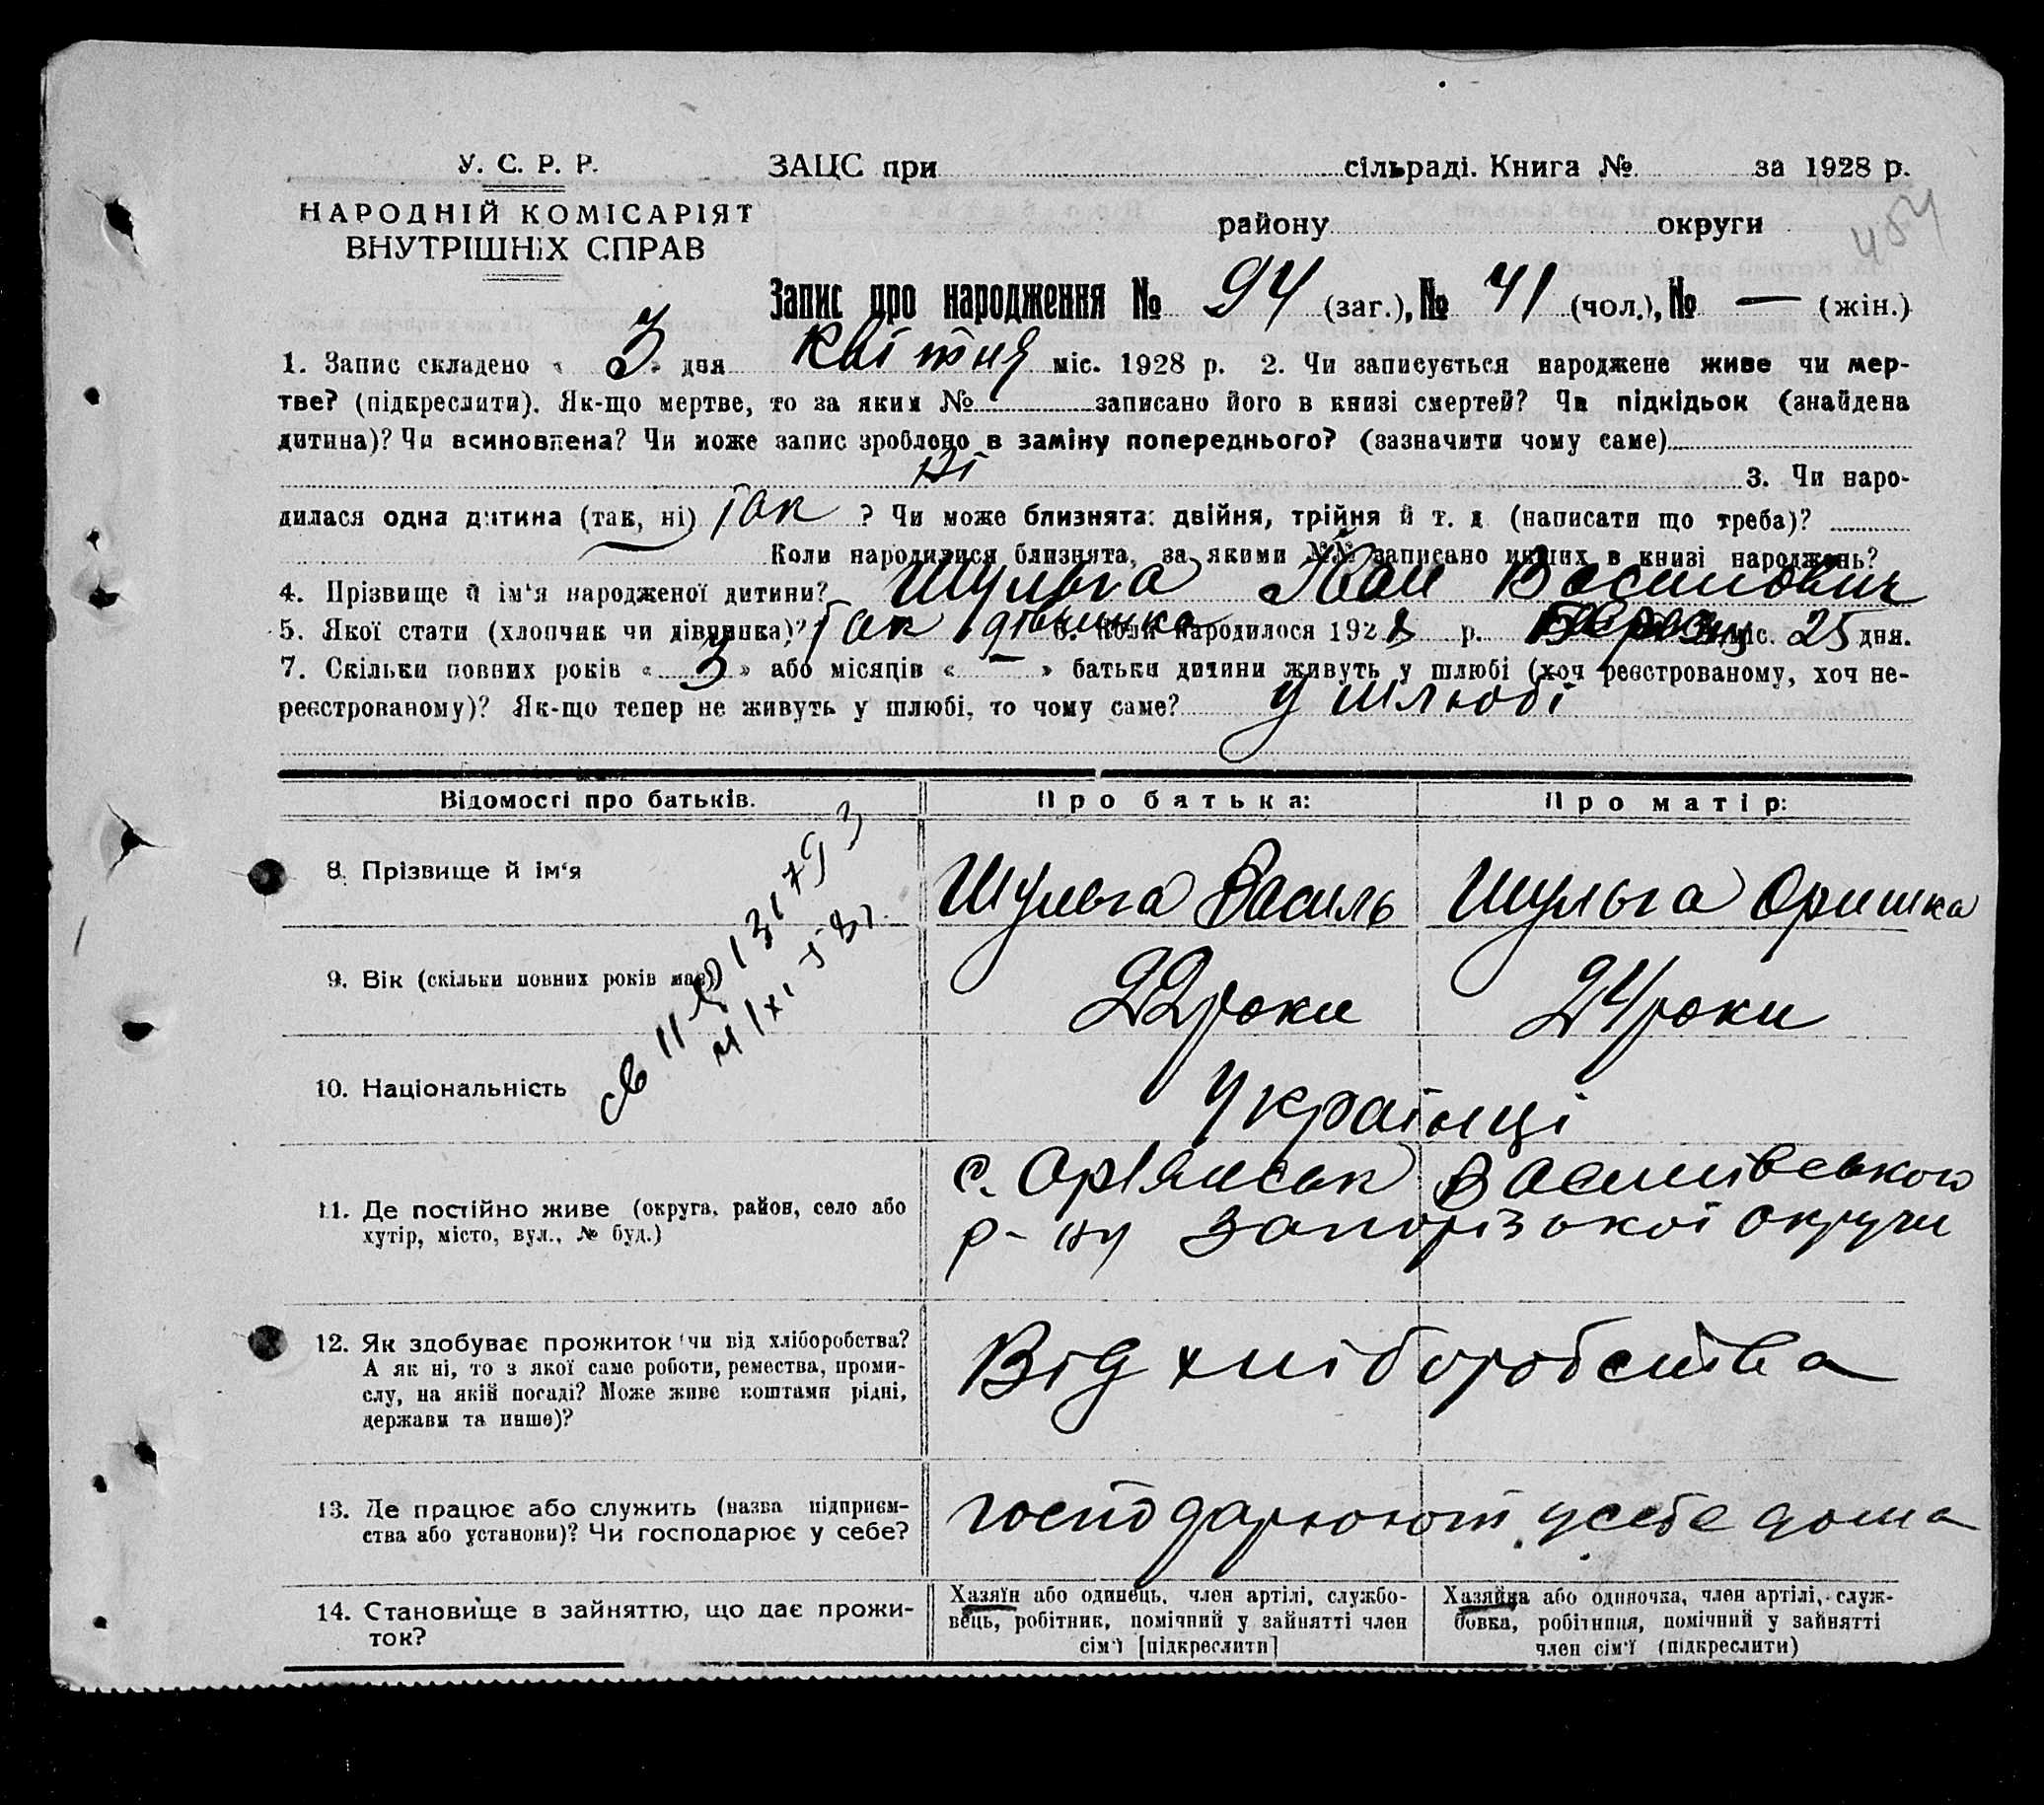 У. С. Р. Р. ЗАЦС при сільраді. Книга № за 1928 р.
НАРОДНІЙ КОМІСАРІЯТ
ВНУТРІШНіХ СПРАВ
району округи
Запис про народження № 94 (заг.), № 41 (чол.), № — (жін.)
1. Запис складено « 3 » дня квітня міс. 1928 р. 2. Чи записується народжене живе чи мер-
тве? (підкреслити). Як-що мертве, то за яким № записано його в книзі смертей? Чи підкідьок (знайдена
дитина)? Чи всиновлена? Чи може запис зроблено в заміну попереднього? (зазначити чому саме)
ні 3. Чи наро-
дилася одна дитина (так, ні) так ? Чи може близнята: двійня, трійня й т. д (написати що треба)?
Коли народилися близнята, за якими №№ записано инших в книзі народжень?
4. Прізвище й ім'я народженої дитини? Шульга Іван Василович
5. Якої стати (хлопчик чи дівчинка)? 6. Коли народилося 1928 р. Березня міс. 25 дня.
7. Скільки повних років « 3 » або місяців « — » батьки дитини живуть у шлюбі (хоч реєстрованому, хоч не-
реєстрованому)? Як-що тепер не живуть у шлюбі, то чому саме? у шлюбі
Відомості про батьків. Про батька: Про матір:
8. Прізвище й ім'я Шульга Василь Шульга Оришка
9. Вік (скільки повних років має) 22 роки 24 роки
10. Національність Українці
11. Де постійно живе (округа, район, село або
хутір, місто, вул., № буд.)
с. Орлянськ Василівського
р-ну Запорізької округи
12. Як здобуває прожиток чи від хліборобства?
А як ні, то з якої саме роботи, ремества, проми-
слу, на якій посаді? Може живе коштами рідні,
держави та инше)?
Від хліборобства
13. Де працює або служить (назва підприєм-
ства або установи)? Чи господарює у себе?
господарюють у себе дома
14. Становище в зайняттю, що дає прожи-
ток?
Хазяїн або одинець, член артілі, службо-
вець, робітник, помічний у зайнятті член
сім'ї [підкреслити]
Хазяйка або одиночка, член артілі, служ-
бовка, робітниця, помічний у зайнятті
член сім'ї (підкреслити)